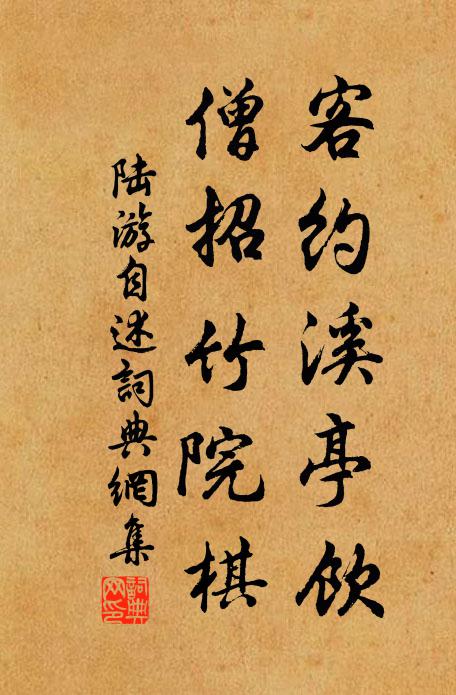 客约溪亭飲
僧招竹院棋
陆游自述詞典網集
詞典網印